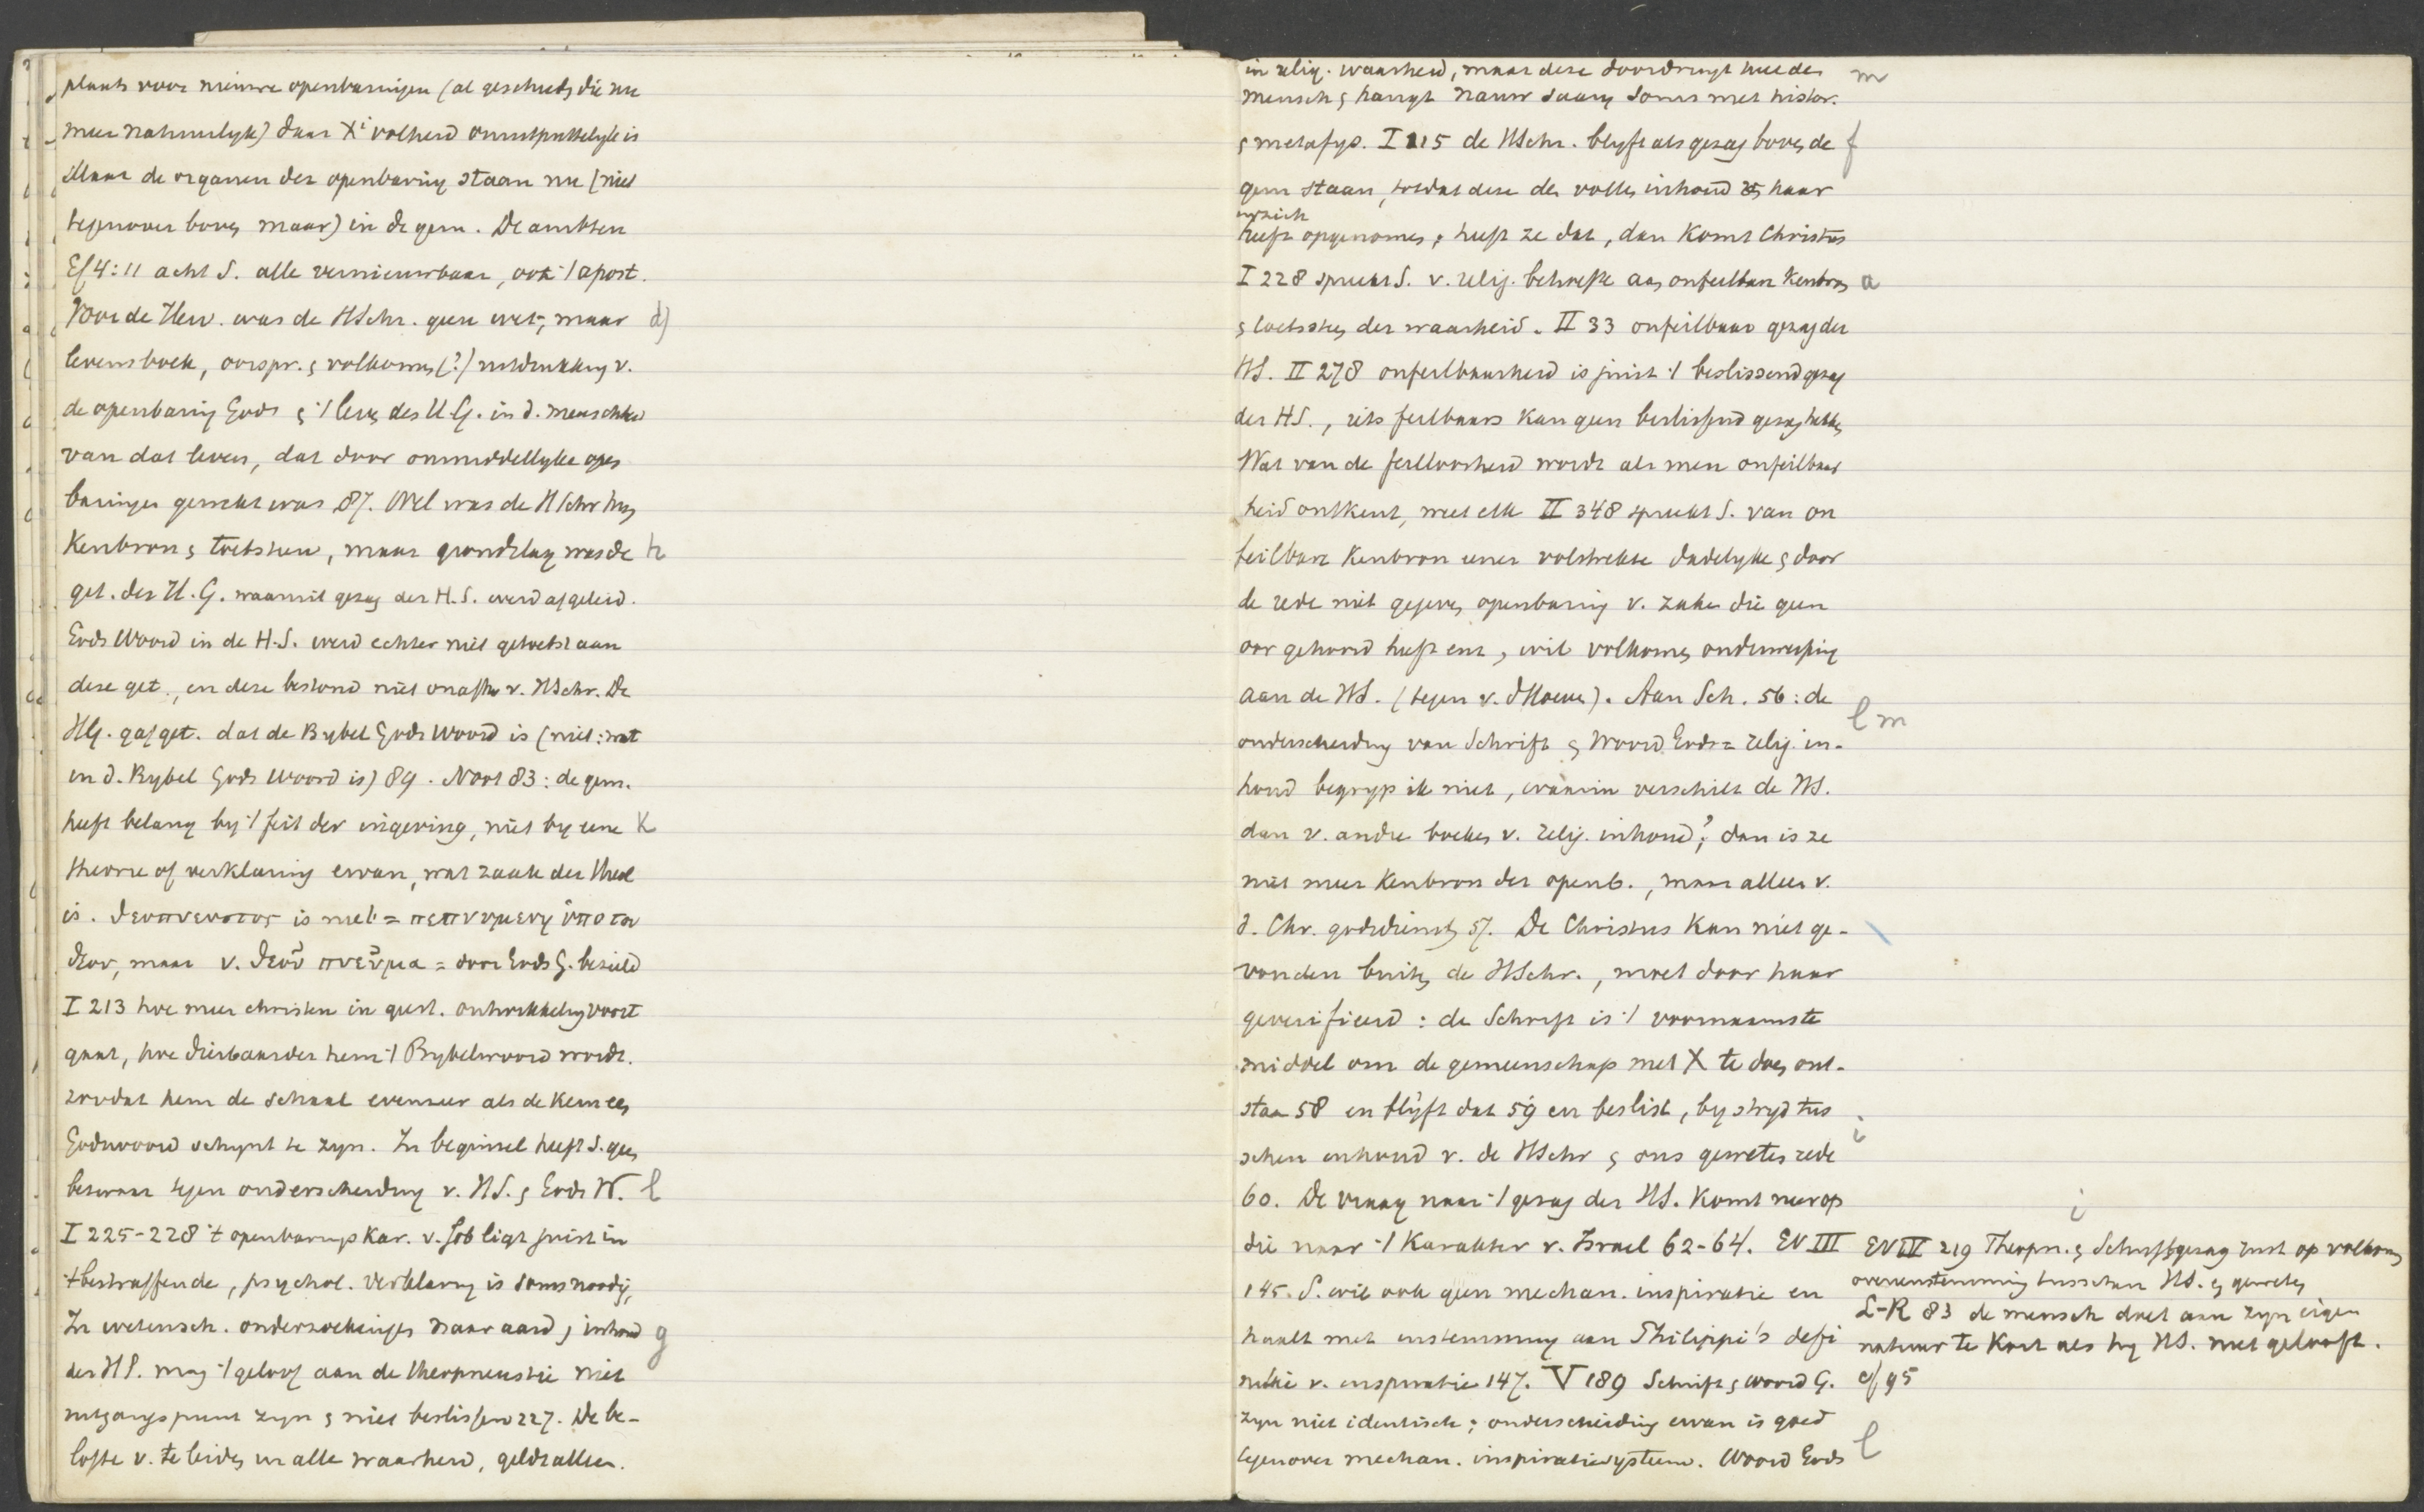 plaats voor nieuwe openbaringen (al geschiedt die nu
meer natuurlyk) daar Xi volheid onuitputtelyk is
Maar de organen der openbaring staan nu (niet
tegenover boven maar) in de gem. De ambten
Ef 4:11 acht S. alle vernieuwbaar, ook 't apost.
Voor de Herv. was de HSchr. geen wet, maar d)
levensboek, oorspr. & volkomen (?) uitdrukking v.
de openbaring Gods & 't leven des H.G. in d. menschheid
van dat leven, dat door onmiddellyke open
baringen gewekt was 87. Wel was de HSchr hun
Kenbron & toetssteen, maar grondslag was de h
get. des H.G. waaruit gezag der H.S. werd afgeleid.
Gods Woord in de H.S. werd echter niet getoetst aan
deze get., en deze bestond niet onafh. v. HSchr. De
HG. gaf get. dat de Bybel Gods Woord is (niet: wat
in d. Bybel Gods Woord is) 89. Noot 83: de gem.
heeft belang by 't feit der ingeving, niet by eene k
theorie of verklaring ervan, wat zaak der theol
is. θεοπνευστος is niet = πεπνυμενη ὑπο του
θεου, maar v. θεοῦ πνεῦμα = door Gods G. bezield
I 213 hoe meer christen in geest. ontwikkeling voort
gaat, hoe dierbaarder hem 't Bybelwoord wordt.
zoodat hem de schaal evenzeer als de kern een
Godswoord schynt te zyn. In beginsel heeft S. geen
bezwaar tegen onderscheiding v. HS. & Gods W. l
I 225-228 't openbarings kar. v. Job ligt juist in
't bestraffende, psychol. verklaring is soms noodig,
In wetensch. onderzoekingen naar aard & inhoud g
der HS. mag 't geloof aan de theopneustie niet
uitgangspunt zyn & niet beslissen 227. De be-
lofte v. te leiden in alle waarheid, geldt alleen.
in relig. waarheid, maar deze doordringt heel den m
mensch & hangt nauw saam soms met histor.
& metafys. I 115 de HSchr. blyft als gezag boven de f
gem staan, totdat deze den vollen inhoud v haar
in zich
heeft opgenomen; heeft ze dat, dan komt Christus
I 228 spreekt S. v. relig. behoefte aan onfeilbare kenbron a
& toetssteen der waarheid. II 33 onfeilbaar gezag der
HS. II 278 onfeilbaarheid is juist 't beslissend gezag
der HS., iets feilbaars kan geen beslissend gezag hebben
Wat van de feilloosheid wordt als men onfeilbaar
heid ontkent, weet elk II 348 spreekt S. van on
feilbare Kenbron eener volstrekte dadelyke & door
de rede niet gegeven openbaring v. zaken die geen
oor gehoord heeft enz, wil volkomen onderwerping
aan de HS. (tegen v. d Hoeve). Aan Sch. 56: de l m
onderscheiding van Schrift & Woord Gods = relig. in-
houd begryp ik niet, waarin verschilt de HS.
dan v. andre boeken v. relig. inhoud?; dan is ze
niet meer Kenbron der openb., maar alleen v.
d. Chr. godsdienst 57. De Christus kan niet ge-
vonden buiten de HSchr., moet door haar
geverifieerd: de Schrift is 't voornaamste
middel om de gemeenschap met X te doen ont-
staan 58 en blyft dat 59 en beslist, by stryd tus
schen inhoud v. de HSchr & ons geweten rede i
60. De vraag naar 't gezag der HS. komt neer op
die naar 't Karakter v. Israel 62-64. EV III
145. S. wil ook geen mechan. inspiratie en
haalt met instemming aan Philippi's defi
nitie v. inspiratie 147. V 189 Schrift & Woord G.
zyn niet identisch; onderscheiding ervan is goed
tegenover mechan. inspiratiesysteem. Woord Gods l
i
EV IV 219 Theopn. & Schriftgezag rust op volkomen
overeenstemming tusschen HS. & geweten
L-R 83 de mensch doet aan zyn eigen
natuur te kort als hy HS. niet gelooft.
cf 95